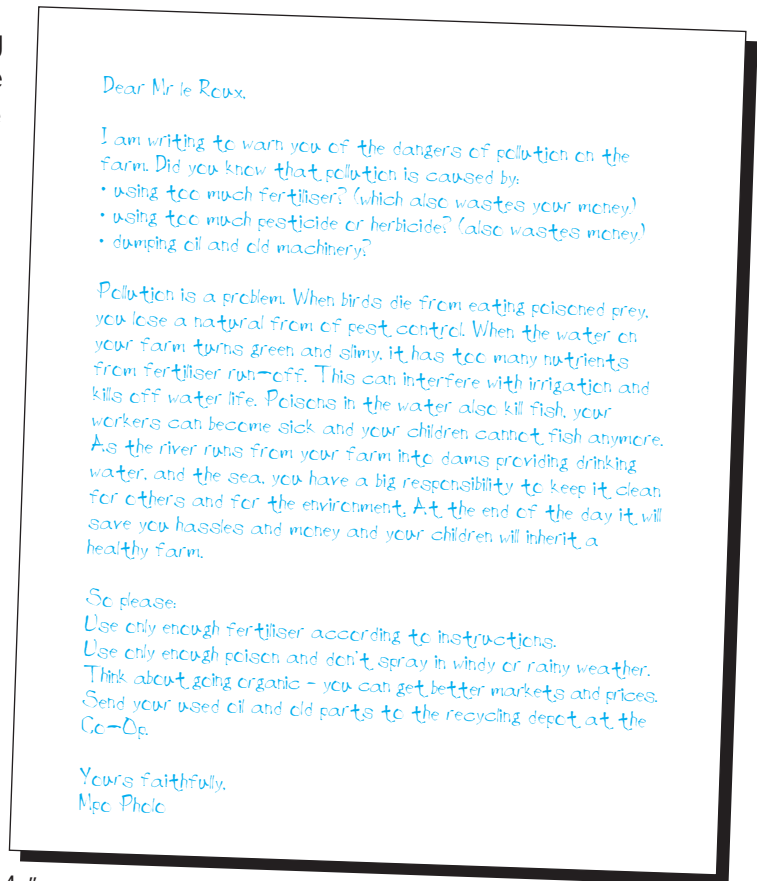 Dear Mr le Roux,
I am writing to warn you of the dangers of pollution on the
farm. Did you know that pollution is caused by:
• using too much fertiliser? (which also wastes your money!)
• using too much pesticide or herbicide? (also wastes money!)
• dumping oil and old machinery?
Pollution is a problem. When birds die from eating poisoned prey,
you lose a natural from of pest control. When the water on
your farm turns green and slimy, it has too many nutrients
from fertiliser run-off. This can interfere with irrigation and
kills off water life. Poisons in the water also kill fish, your
workers can become sick and your children cannot fish anymore.
As the river runs from your farm into dams providing drinking
water, and the sea, you have a big responsibility to keep it clean
for others and for the environment. At the end of the day it will
save you hassles and money and your children will inherit a
healthy farm.
So please:
Use only enough fertiliser according to instructions.
Use only enough poison and don't spray in windy or rainy weather.
Think about going organic - you can get better markets and prices.
Send your used oil and old parts to the recycling depot at the
Co-Op.
Yours faithfully,
Mpo Pholo